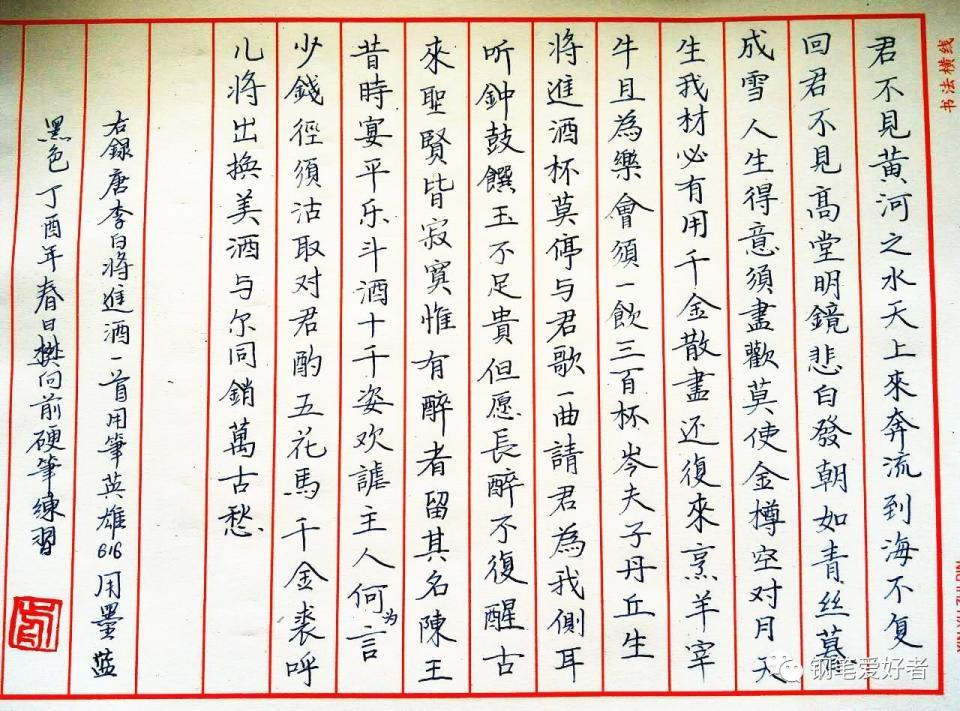 君不見黃河之水天上來奔流到海不复
回君不見高堂明鏡悲白發朝如青丝暮
成雪人生得意須盡歡莫使金樽空对月天
生我材必有用千金散盡还復來烹羊宰
牛且為樂會須一飲三百杯岑夫子丹丘生
将進酒杯莫停与君歌一曲請君為我側耳
听鈡鼓饌玉不足貴但愿長醉不復醒古
來聖賢皆寂寞惟有醉者留其名陳王
昔時宴平乐斗酒十千姿欢謔主人何为言
少錢徑須沽取对君酌五花馬千金裘呼
儿将出换美酒与尔同銷萬古愁
右録唐李白将進酒一首用筆英雄616用墨蓝
黑色丁酉年春日樊向前硬筆練習
书法横线
钢笔爱好者